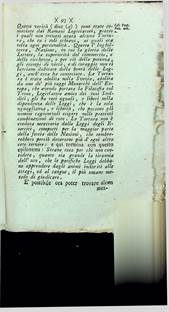 X 92 X
Questa verità (dice egli) sono state
mentate dai Romani Legislatori, presso
i quali non trovasi usata alcuna Tortu-
ra, che su i soli schiavi, ai quali era
tolta ogni personalità. Questa l'Inghil-
terra, Nazione, in cui la gloria delle
Lettere, la superiorità del commercio, e
delle ricchezze, e per ciò della potenza,
gli esempi di virtù, e di coraggio non ci
lasciano dubitare della bontà delle Leg-
gi, anch'essa ha conosciute. La Tortura
è stata abolita nella Svezia, abolita
da uno de' più saggi Monarchi dell'Eu-
ropa, che avendo portata la Filosofia sul
Trono, Legislatore amico dei suoi Sud-
diti, gli ha resi uguali, e liberi nella
dipendenza delle Leggi, che è la sola
uguaglianza, e libertà, che possono gli
uomini ragionevoli esigere nelle presenti
combinazioni di cose. La Tortura non è
creduta necessaria dalle Leggi degli E-
serciti, composti per la maggior parte
della feccia delle Nazioni, che sembre-
rebbero perciò doversene più d'ogni altro
ceto servire: e qui termina con questo
epifonema: Strana cosa per chi non con-
sidera, quanto sia grande la tirannia
dell'uso, che le pacifiche Leggi debba-
no apprendere dagli animi induriti alle
stragi, ed al sangue, il più umano me-
todo di giudicare.
E' possibile ora poter trovare alcun